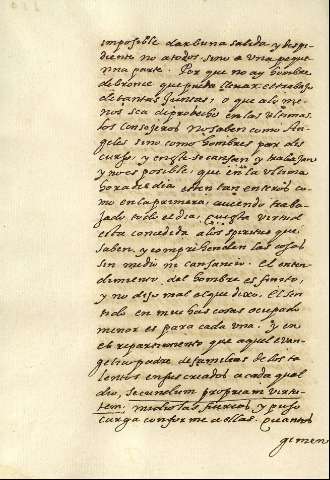 imposible dar buena salida y despi
diente no a todos sino a una peque
nna parte. Porque no ay hombre
de bronce que pueda lleuar el trabajo
de tantas Juntas, o que alo me
nos sea de prouecho en las vltimas.
los consejeros no saben como An
geles sino como hombres por dis
curso, y en el se cansan y trabajan
y no es posible, que en la vltima
hora del dia esten tan enteros co
mo en la primera, auiendo traba
jado todo el dia. Quietta virtud
esta concedida a los spiritus que
saben, y comprehenden las cosas
sin medio ni cansancio. El enten
dimiento del hombre es finito,
y no dijo mal el que dixo. El sen
tido en muchas cosas ocupado
menor es para cada vna. Y en
el repartimiento que aquel euan
gelico padre de familias de los ta
lentos en sus criados a cada qual
dio, secundum propriam virtu
tem. midio las fuerças, y puso
carga conforme a ellas. Quantos
gimen